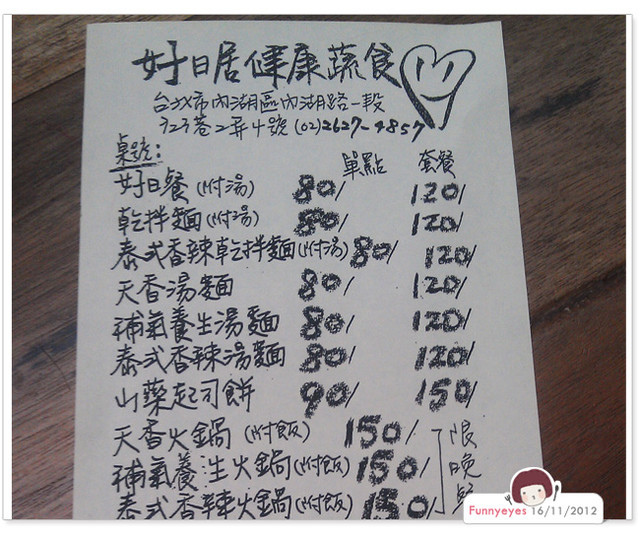 好日居健康蔬食
台北市內湖區內湖路一段
323巷2弄4號 (02)2627-9857
桌號:
單點 套餐
好日餐(附湯) 80/ 120/
乾拌麵(附湯) 80/ 120/
泰式香辣乾拌麵(附湯) 80/ 120/
天香湯麵 80/ 120/
補氣養生湯麵 80/ 120/
泰式香辣湯麵 80/ 120/
山藥起司餅 90/ 150/
天香火鍋(附飯) 150/
補氣養生火鍋(附飯) 150/
泰式香辣火鍋(附飯) 150/
限晚
Funnyeyes 16/11/2012